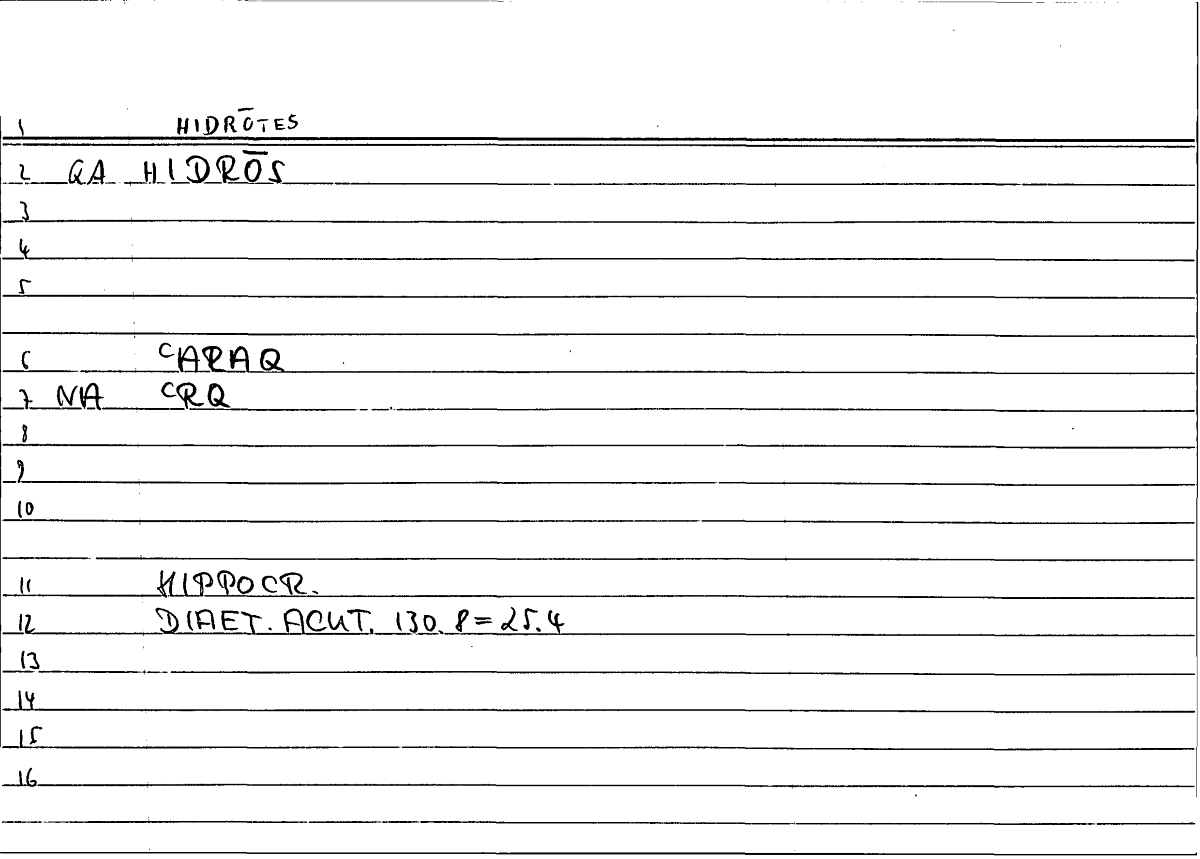 1 HIDRŌTES
2 QA HIDRŌS
3
4
5
6 ᶜARAQ
7 NA ᶜRQ
8
9
10
11 HIPPOCR.
12 DIAET. ACUT. 130.8=25.4
13
14
15
16